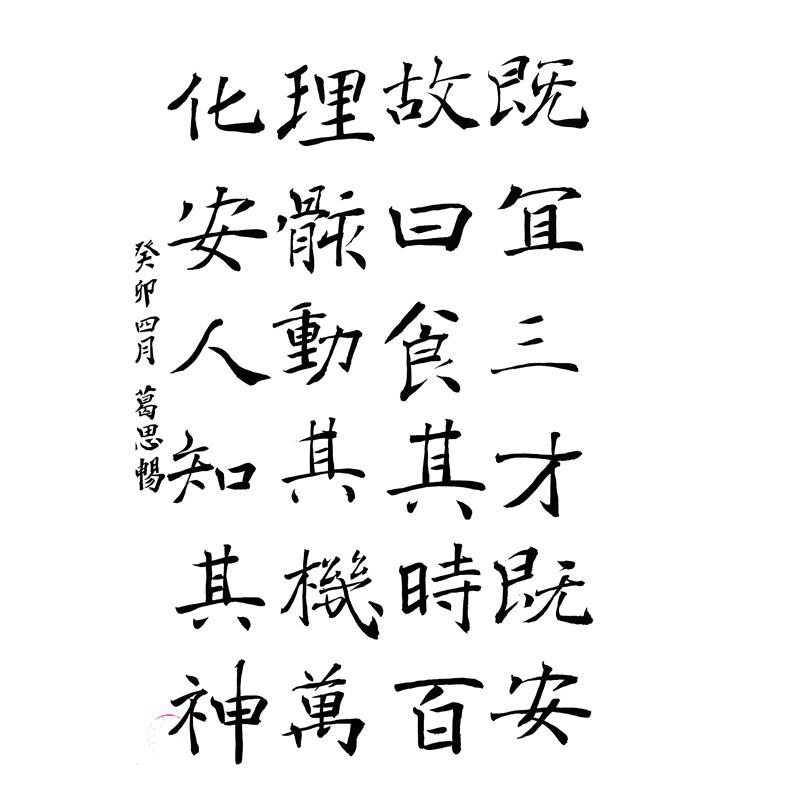 既宜三才既安
故曰食其時百
理骸動其機萬
化安人知其神
癸卯四月葛思暢